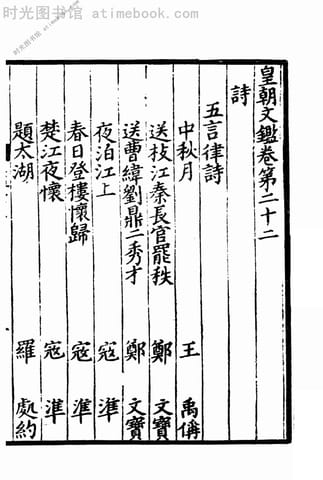 时光图书馆 - atimebook.com
皇朝文鑑卷第二十二
詩
五言律詩
中秋月 王禹偁
送枝江秦長官罷秩 鄭文寶
送曹緯劉鼎二秀才 鄭文寶
夜泊江上 寇準
春日登樓懷歸 寇準
楚江夜懷 寇準
題太湖 羅處約